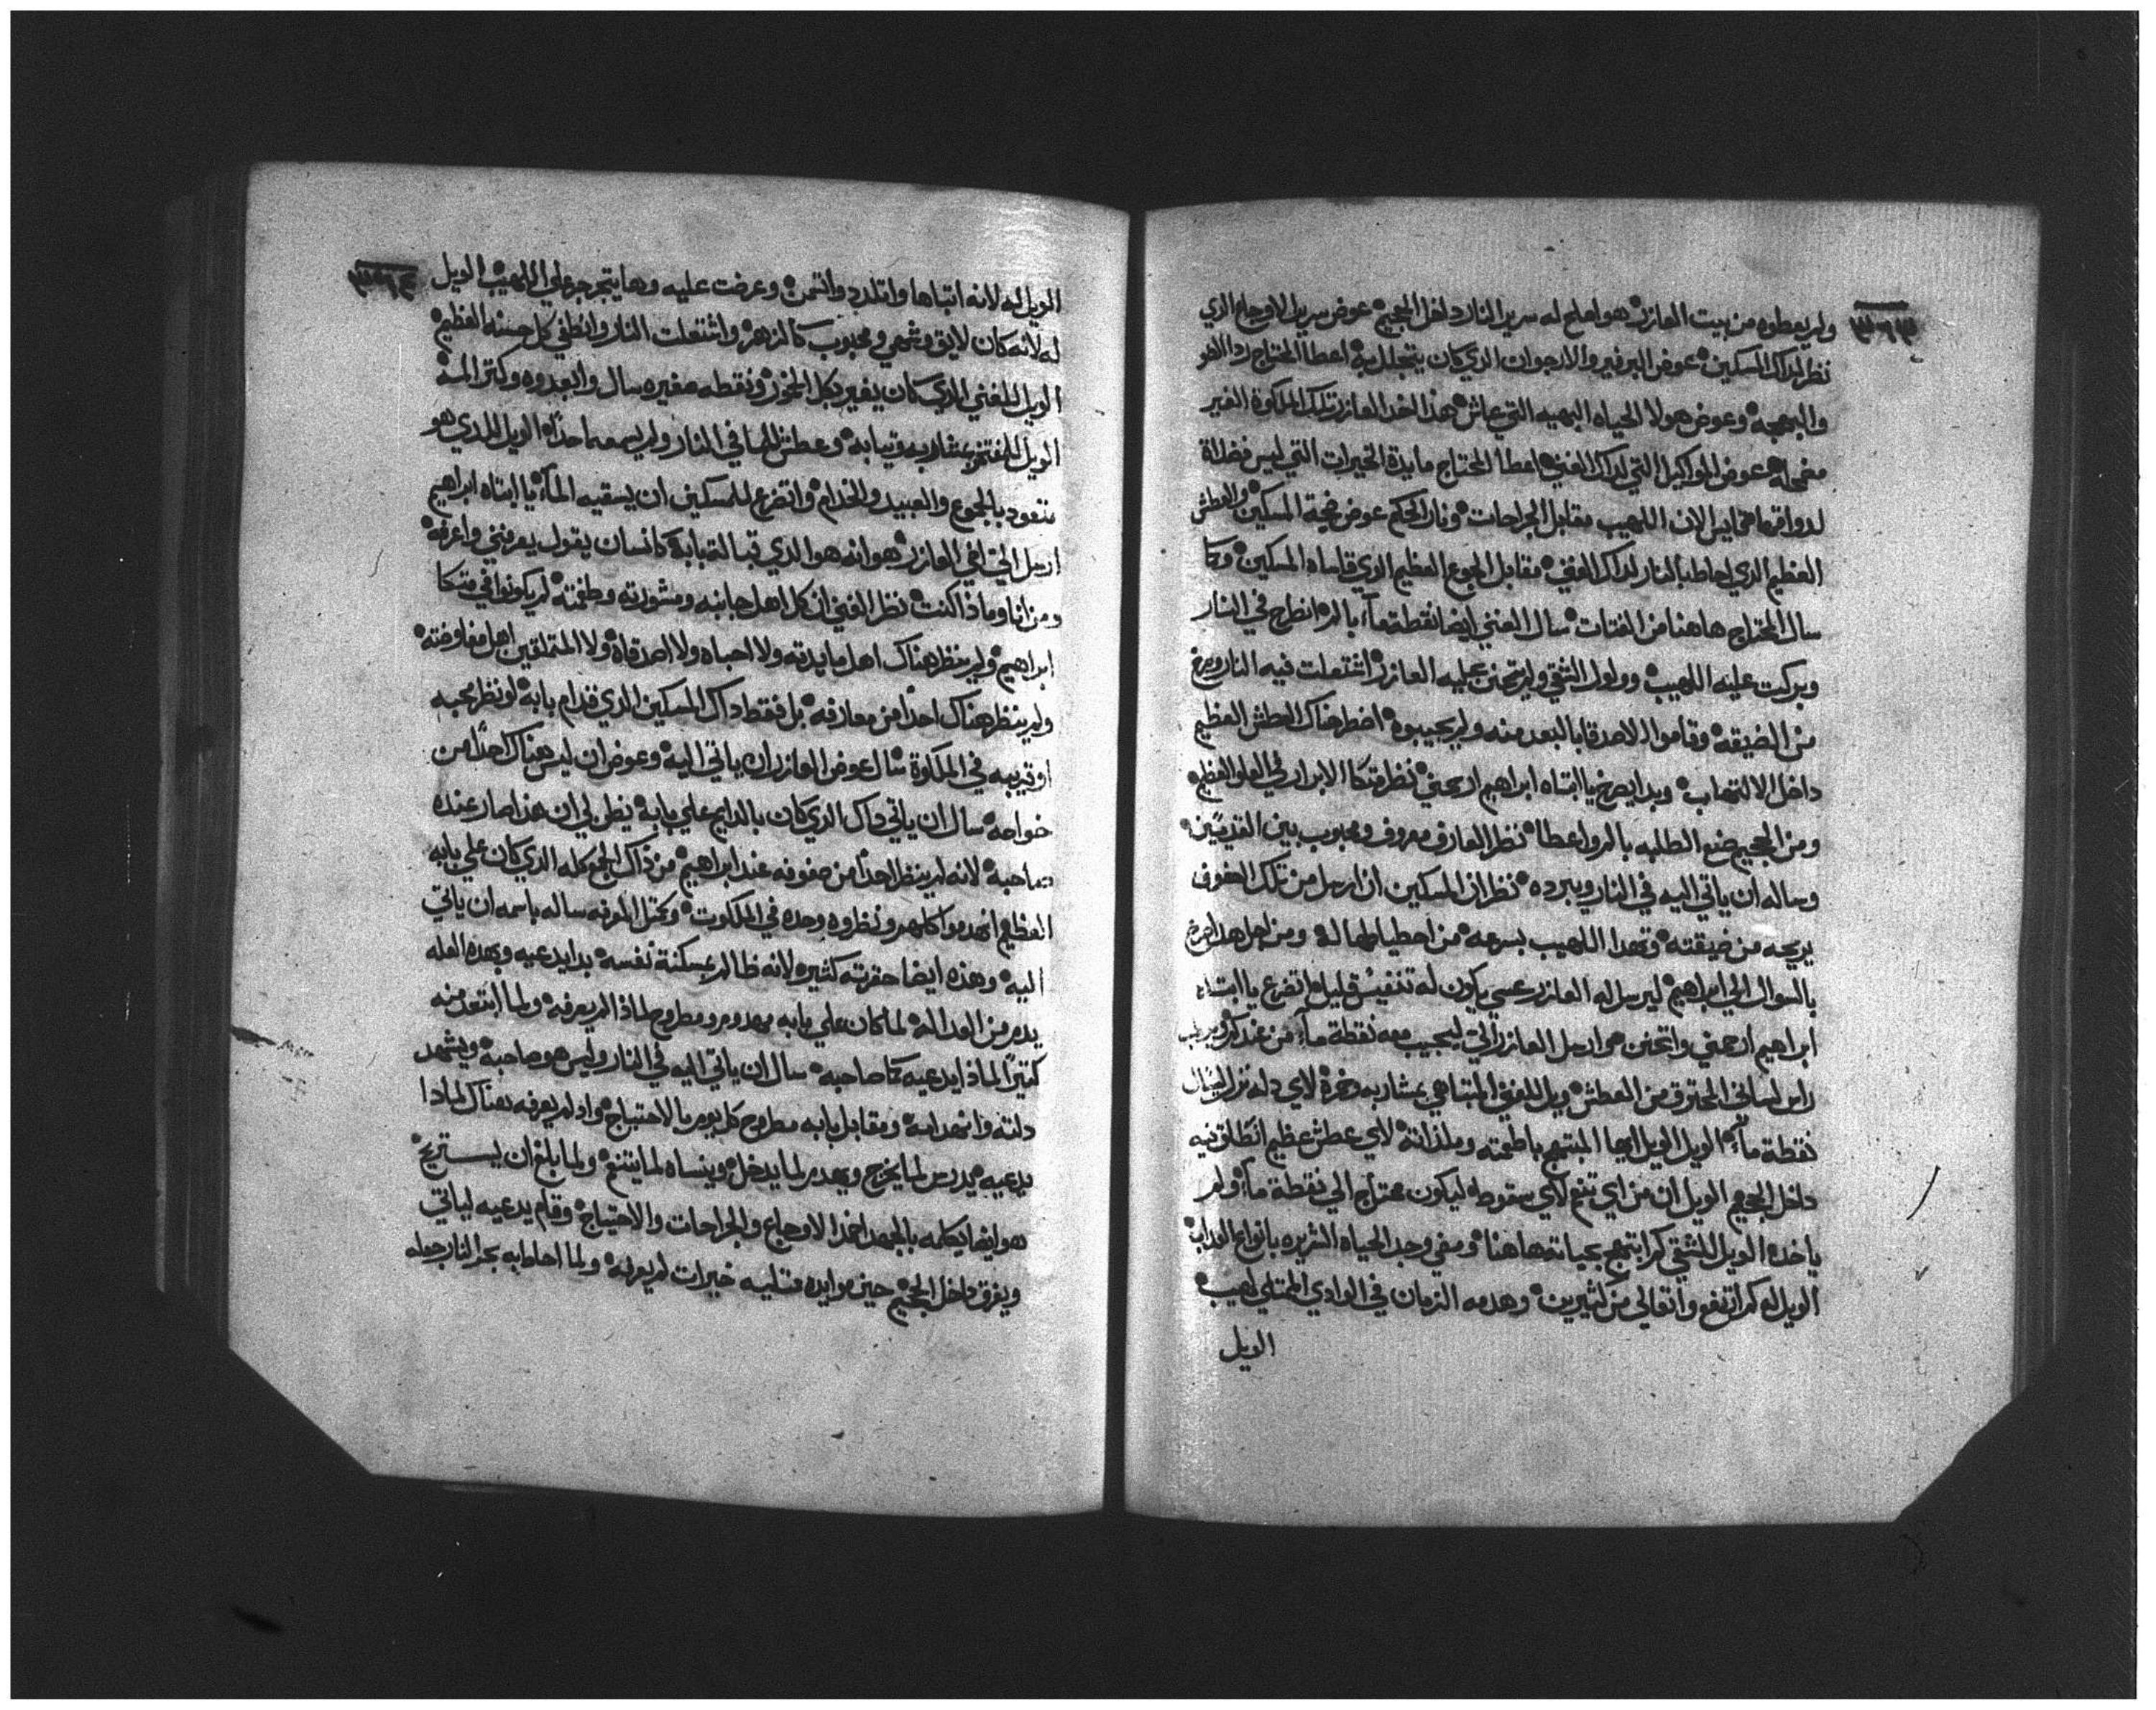 ٣٩٣
ولم يعطوه من بيت العازر هو اصلح له سرير النار داخل الجحيم عوض سرير الاوجاع الذي
نظر لداك المسكين عوض البرفير والارجوان الذي كان يتجلل به اعطا المحتاج ردا
والبهجه وعوض هولا الحياه البهيه التي عاش هذا اخد العازر تلك الملكوة الغير
مضمحله عوض المواكيل التي لداك الغني اعطا المحتاج مايدة الخيرات التي ليس فضلاة
الان اللهيب مقابل الجراحات ونار الحكم عوض المسكين والعطش
العظيم الذي احاط بالنار لداك الغني مقابل الجوع العظيم الذي قاساه المسكين وكما
سال المحتاج هاهنا من الفتات سال الغني ايضا نقطة مآء بالم انطرح في النار
وبركت عليه اللهيب وولول الشقي ولم يتحنن عليه العازر اشتعلت فيه النار وصرخ
من الضيقه وقاموا الاصدقا بالبعد منه ولم يجيبوه اضطر هناك العطش العظيم
داخل الالتهاب وبدا يصرخ يا ابتاه ابراهيم ارحمني نظر متكا الابرار في العلو العظيم
ومن الجحيم صنع الطلبه بالم واعطا نظر العازر معروف ومحبوب بين القديسين
وساله ان ياتي اليه في النار ويبرده نظر ان المسكين ان ارسل من تلك الصفوف
يريحه من ضيقته وتهدا اللهيب بسرعه من ومن اجل هدا صرخ
بالسوال الي ابراهيم ليرسل له العازر عسي يكون له تنفيس قليل اتضرع يا ابتاه
ابراهيم ارحمني واتحنن وارسل العازر الي ليجيب معه نقطة مآء من عندكم ويرطب
راس لساني المحترق من العطش ويل للغني المتباهي بمشاربه وخمرة لاي دله نزل ليسال
نقطة مآء الويل الويل ايها المبتهج باطعمته وملذاته لاي عطش عظيم انطلق فيه
داخل الجحيم الويل ان من اي تنعم لاي سقوط ليكون محتاج الي نقطة مآء ولم
ياخده الويل للشقي كم ابتهج بحياته هاهنا ومضي وجد الحياه الشريره بانواع العداب
الويل له كم ارتفع واتعالي من كثيرين وهدمه الزمان في الوادي الممتلي لهيب
الويل
٣٩٤
الويل له لانه اتباها واتلدد واتنعم وعرضت عليه وها يتجرجر علي اللهيب الويل
له لانه كان لايق وشهي ومحبوب كالزهر واشتعلت النار وانطفي كل حسنه العظيم
الويل للغني الذي كان يغير بكل الخمور ونقطه صغيره سال وابعدوه وكتر المه
الويل للمفتخر بمشاربه وتيابه وعطش للما في النار ولم يسمعه احدًا الويل للدي هو
متعود بالجموع والعبيد والخدام واتضرع للمسكين ان يسقيه المآء يا ابتاه ابراهيم
ارسل الي اخي العازر هو انه هو الذي قبالة بابه كانسان يقول يعرفني واعرفه
ومن انا وماذا كنت نظر الغني ان كل اهل جانبه ومشورته وطغمته لم يكونوا في متكا
ابراهيم ولم ينظر هناك اهل مايدته ولا احباه ولا اصدقاة ولا المتملقين اهل مفاوضته
ولم ينظر هناك احدًا من معارفه بل فقط داك المسكين الذي قدام بابه لو نظر محبه
او قريبه في الملكوة سال عوض العازر ان ياتي اليه وعوض ان ليس هناك احدًا من
خواصه سال ان ياتي داك الذي كان بالدايم علي بابه يظن لي ان هذا صار عنده
صاحبه لانه لم ينظر احدًا من صفوفه عند ابراهيم من ذاك الجمع كله الذي كان علي بابه
العظيم انهدموا كلهم ونظروه وحده في الملكوت وكمثل المعرفه ساله باسمه ان ياتي
اليه وهذه ايضا حقرته كثيره لانه ظالم بمسكنة نفسه بدا يدعيه وبهده العله
يدم من العداله لما كان علي بابه مهدوم ومطروح لماذا لم يعرفه ولما ابتعد منه
كثيرًا لماذا يدعيه كما صاحبه سال ان ياتي اليه في النار وليس هو صاحبه ويشهد
دلته وانهدامه ومقابل بابه مطروح كل يوم بالاحتياج واد لم يعرفه هناك لمادا
يدعيه يدرس لما يخرج ويهدم لما يدخل وينساه لما يتنعم ولما بلغ ان يستريح
هو ايضا يكلمه بالجهد اخد الاوجاع والجراحات والاحتياج وقام يدعيه لياتي
ويغرق داخل الجحيم حين موايده ممتليه خيرات لم يعرفه ولما احاط به بحر النار جعله